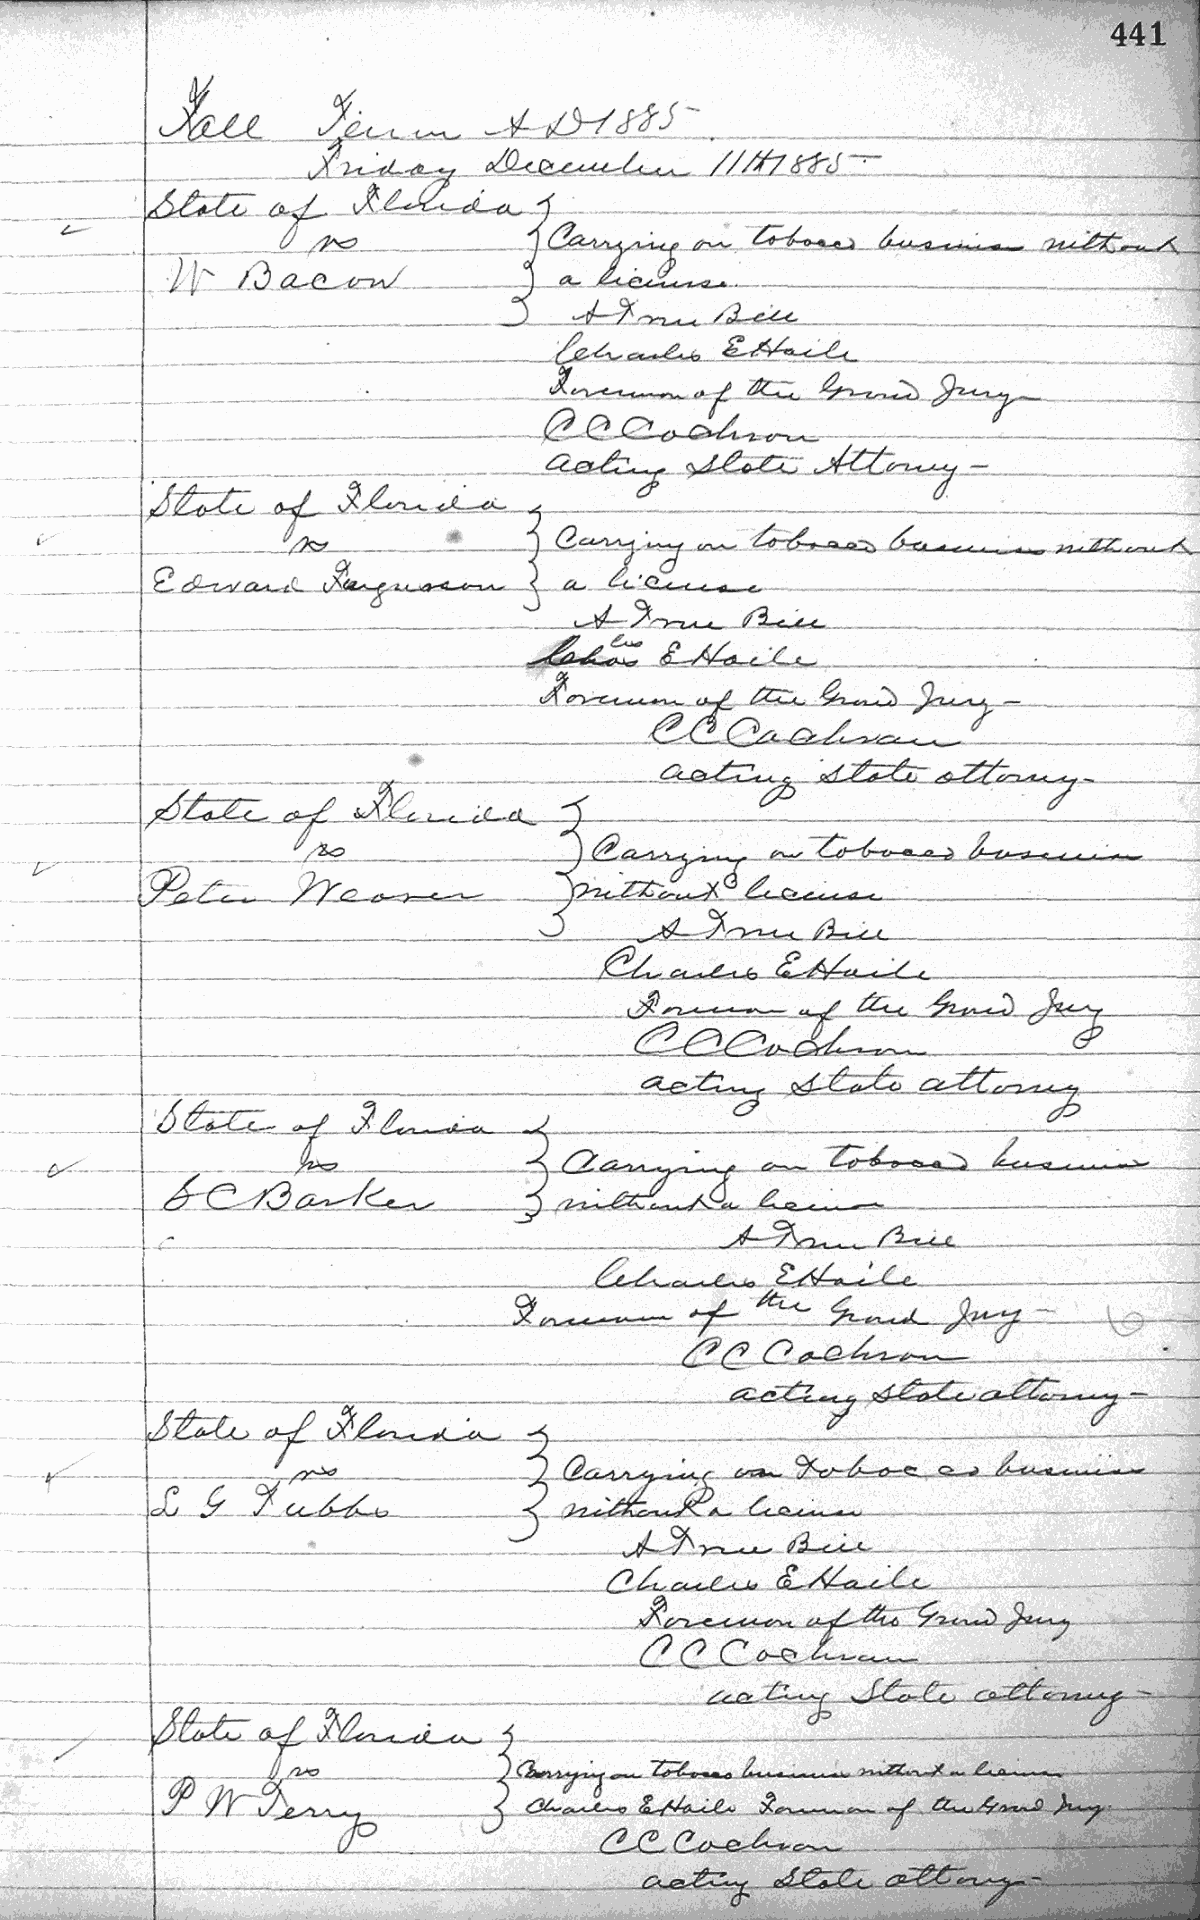 441
Fall Term A D 1885
Friday December 11th 1885
State of Florida
vs
Carrying on tobacco business without
W Bacon
a license
A True Bill
Charles E Haile
Foreman of the Grand Jury
C C Cochran
acting State Attorney
State of Florida
vs
Carrying on tobacco business without
Edward Farguson
a license
A True Bill
Charles E Haile
Foreman of the Grand Jury
C C Cochran
acting State attorney
State of Florida
vs
Carrying on tobacco business
Peter Weaver
without license
A True Bill
Charles E Haile
Foreman of the Grand Jury
C C Cochran
acting State attorney
State of Florida
vs
Carrying on tobacco business
C Barker
without a license
A True Bill
Charles E Haile
Foreman of the Grand Jury
C C Cochran
acting State attorney
State of Florida
vs
Carrying on tobacco business
L G Tubbs
without a license
A True Bill
Charles E Haile
Foreman of the Grand Jury
C C Cochran
acting State attorney
State of Florida
vs
Carrying on tobacco business without a license
P W Terry
Charles E Haile Foreman of the Grand Jury
C C Cochran
acting State attorney